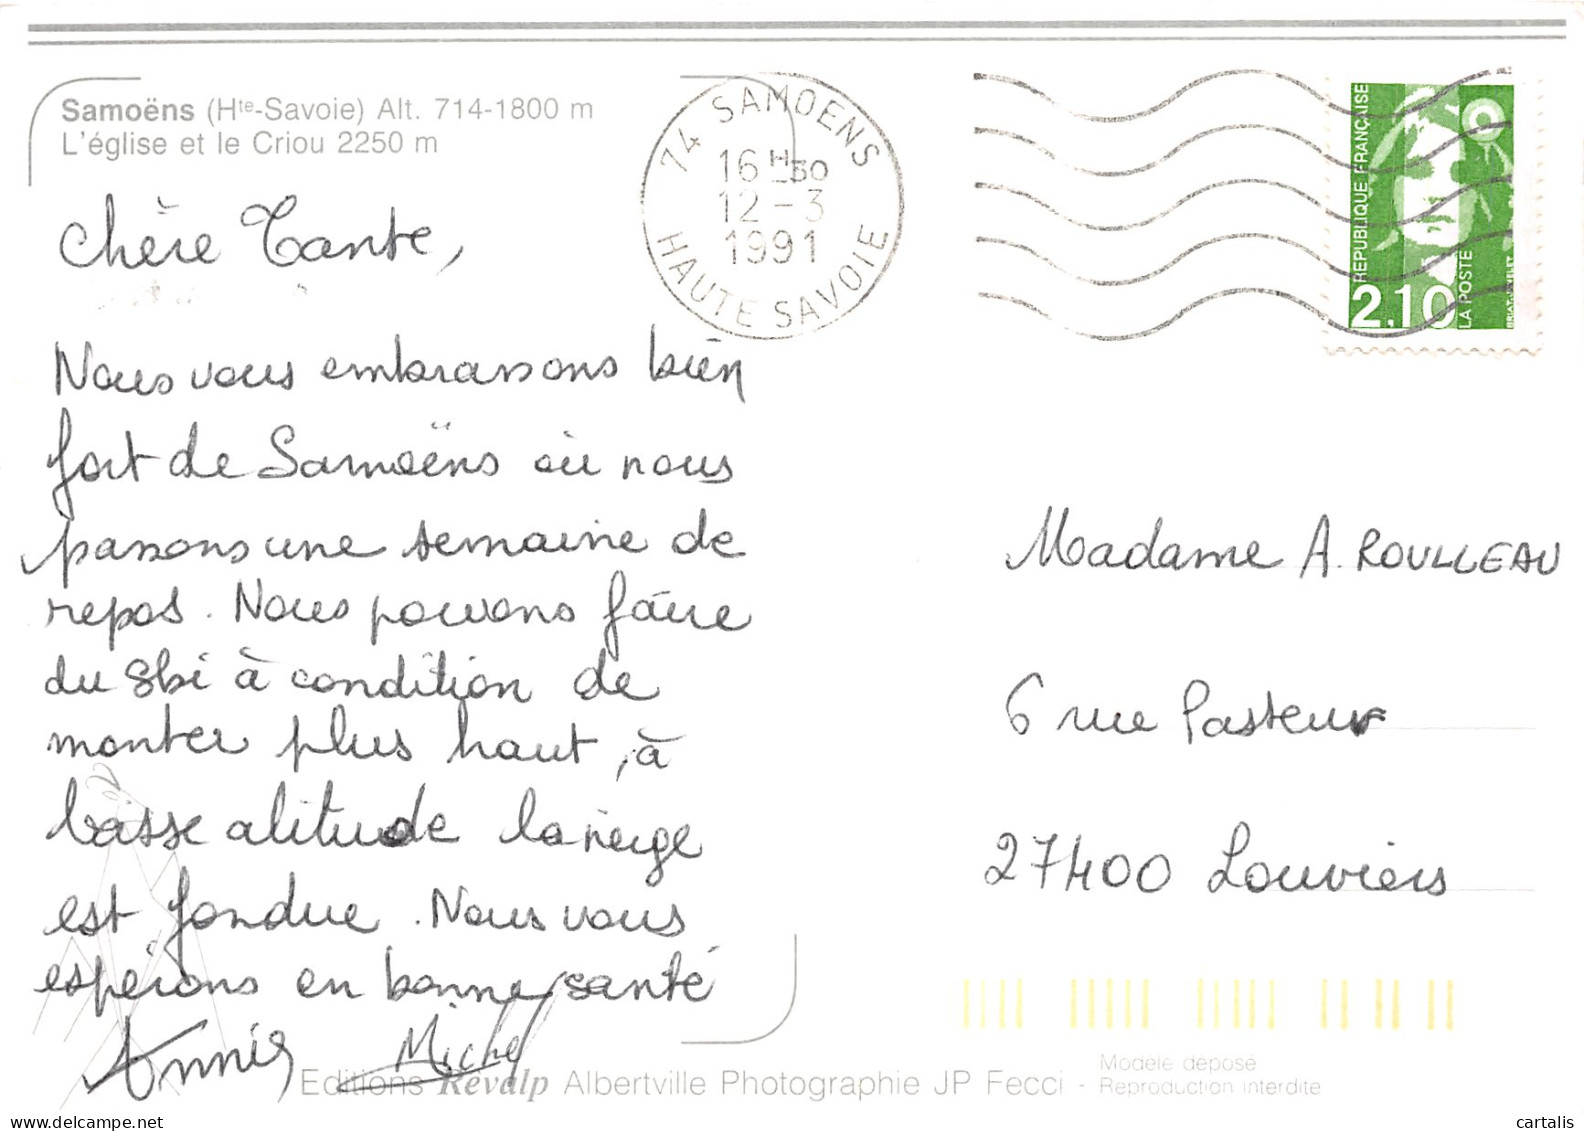 Samoëns (Hte-Savoie) Alt. 714-1800 m
L'église et le Criou 2250 m
74 SAMOENS
16 H 30
12 - 3
1991
HAUTE SAVOIE
REPUBLIQUE FRANÇAISE
2,10
LA POSTE
Chère Tante,
Nous vous embrassons bien
fort de Samoëns où nous
passons une semaine de
repos. Nous pouvons faire
du ski à condition de
monter plus haut, à
basse altitude la neige
est fondue. Nous vous
espérons en bonne santé
Annie Michel
Madame A. ROULLEAU
6 rue Pasteur
27400 Louviers
Editions Revalp Albertville Photographie JP Fecci -
Modèle déposé
Reproduction interdite
cartalis